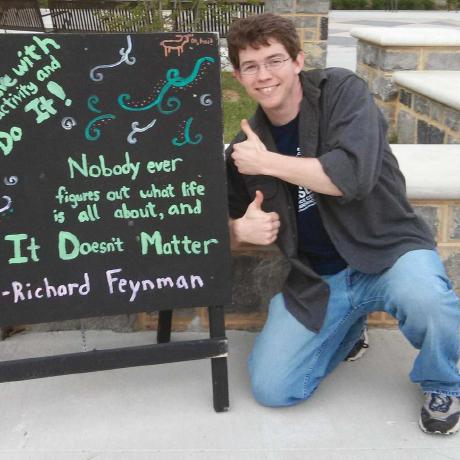 oh, hai!
with
and
Do It!
Nobody ever
figures out what life
is all about, and
It Doesn't Matter
-Richard Feynman